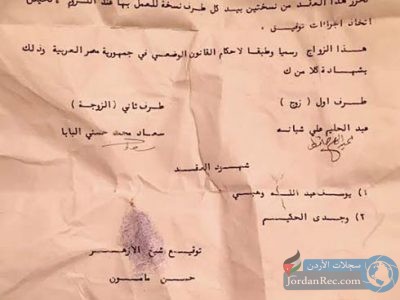 تحرر هذا العقد من نسختين بيد كل طرف نسخة للعمل بها عند اللزوم
اتخاذ اجراءات توثيق .
هذا الزواج رسميا وطبقا لاحكام القانون الوضعي في جمهورية مصر العربية وذلك
بشهادة كلا من ك
طرف اول ( زوج ) طرف ثاني ( الزوجة )
عبد الحليم علي شبانه سعاد محمد حسني البابا
شهود العقد
١ ) يوسف عبد الله وهبي
٢ ) وجدي الحكيم
توقيع شيخ الازهر
حسن مامون
سجلات الأردن
JordanRec.com